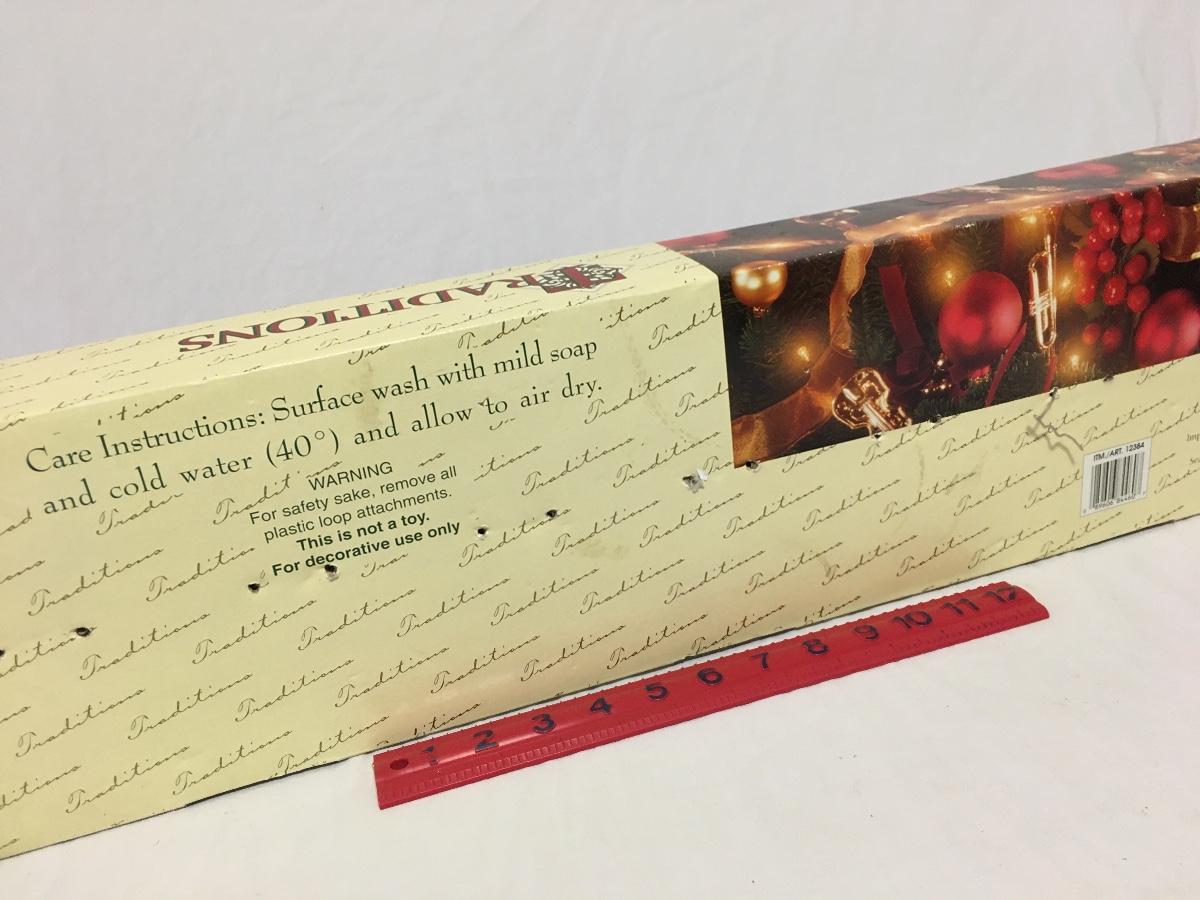 TRADITIONS
Care Instructions: Surface wash with mild soap
and cold water (40°) and allow to air dry.
WARNING
For safety sake, remove all
plastic loop attachments.
This is not a toy.
For decorative use only
ITM./ART. 12384
Traditions
Traditions
Traditions
Traditions
Traditions
Traditions
Traditions
Traditions
Traditions
Traditions
1 2 3 4 5 6 7 8 9 10 11 12